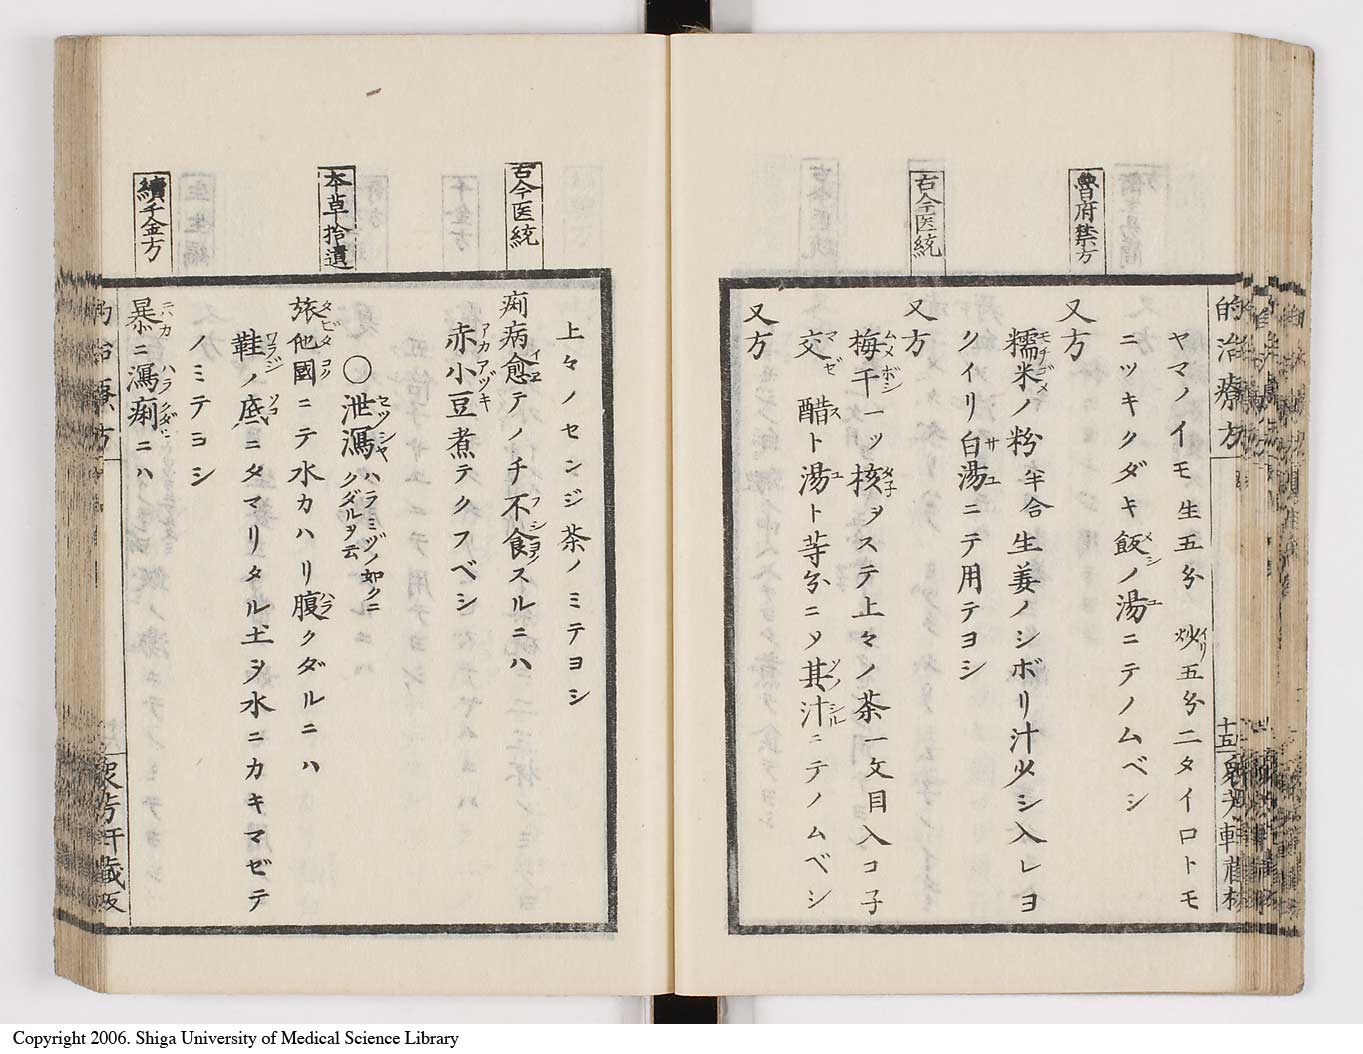 的治療方
十五
ヤマノイモ 生五分 炒五分ニタイロトモ
ニツキクダキ飯ノ湯ニテノムベシ
魯府禁方
又方
糯米ノ粉 半合 生姜ノシボリ汁少シ入レヨ
クイリ白湯ニテ用テヨシ
古今医統
又方
梅干一ッ核ヲステ上々ノ茶一文目入コ子
交 醋ト湯ト等分ニメ其汁ニテノムベシ
又方
上々ノセンジ茶ノミテヨシ
古今医統
痢病愈テノチ不食スルニハ
赤小豆煮テクフベシ
○泄瀉 ハラミヅノ如クニクダルヲ云
本草拾遺
旅他國ニテ水カハリ腹クダルニハ
鞋ノ底ニタマリタル土ヲ水ニカキマゼテ
ノミテヨシ
續千金方
暴ニ瀉痢ニハ
Copyright 2006. Shiga University of Medical Science Library